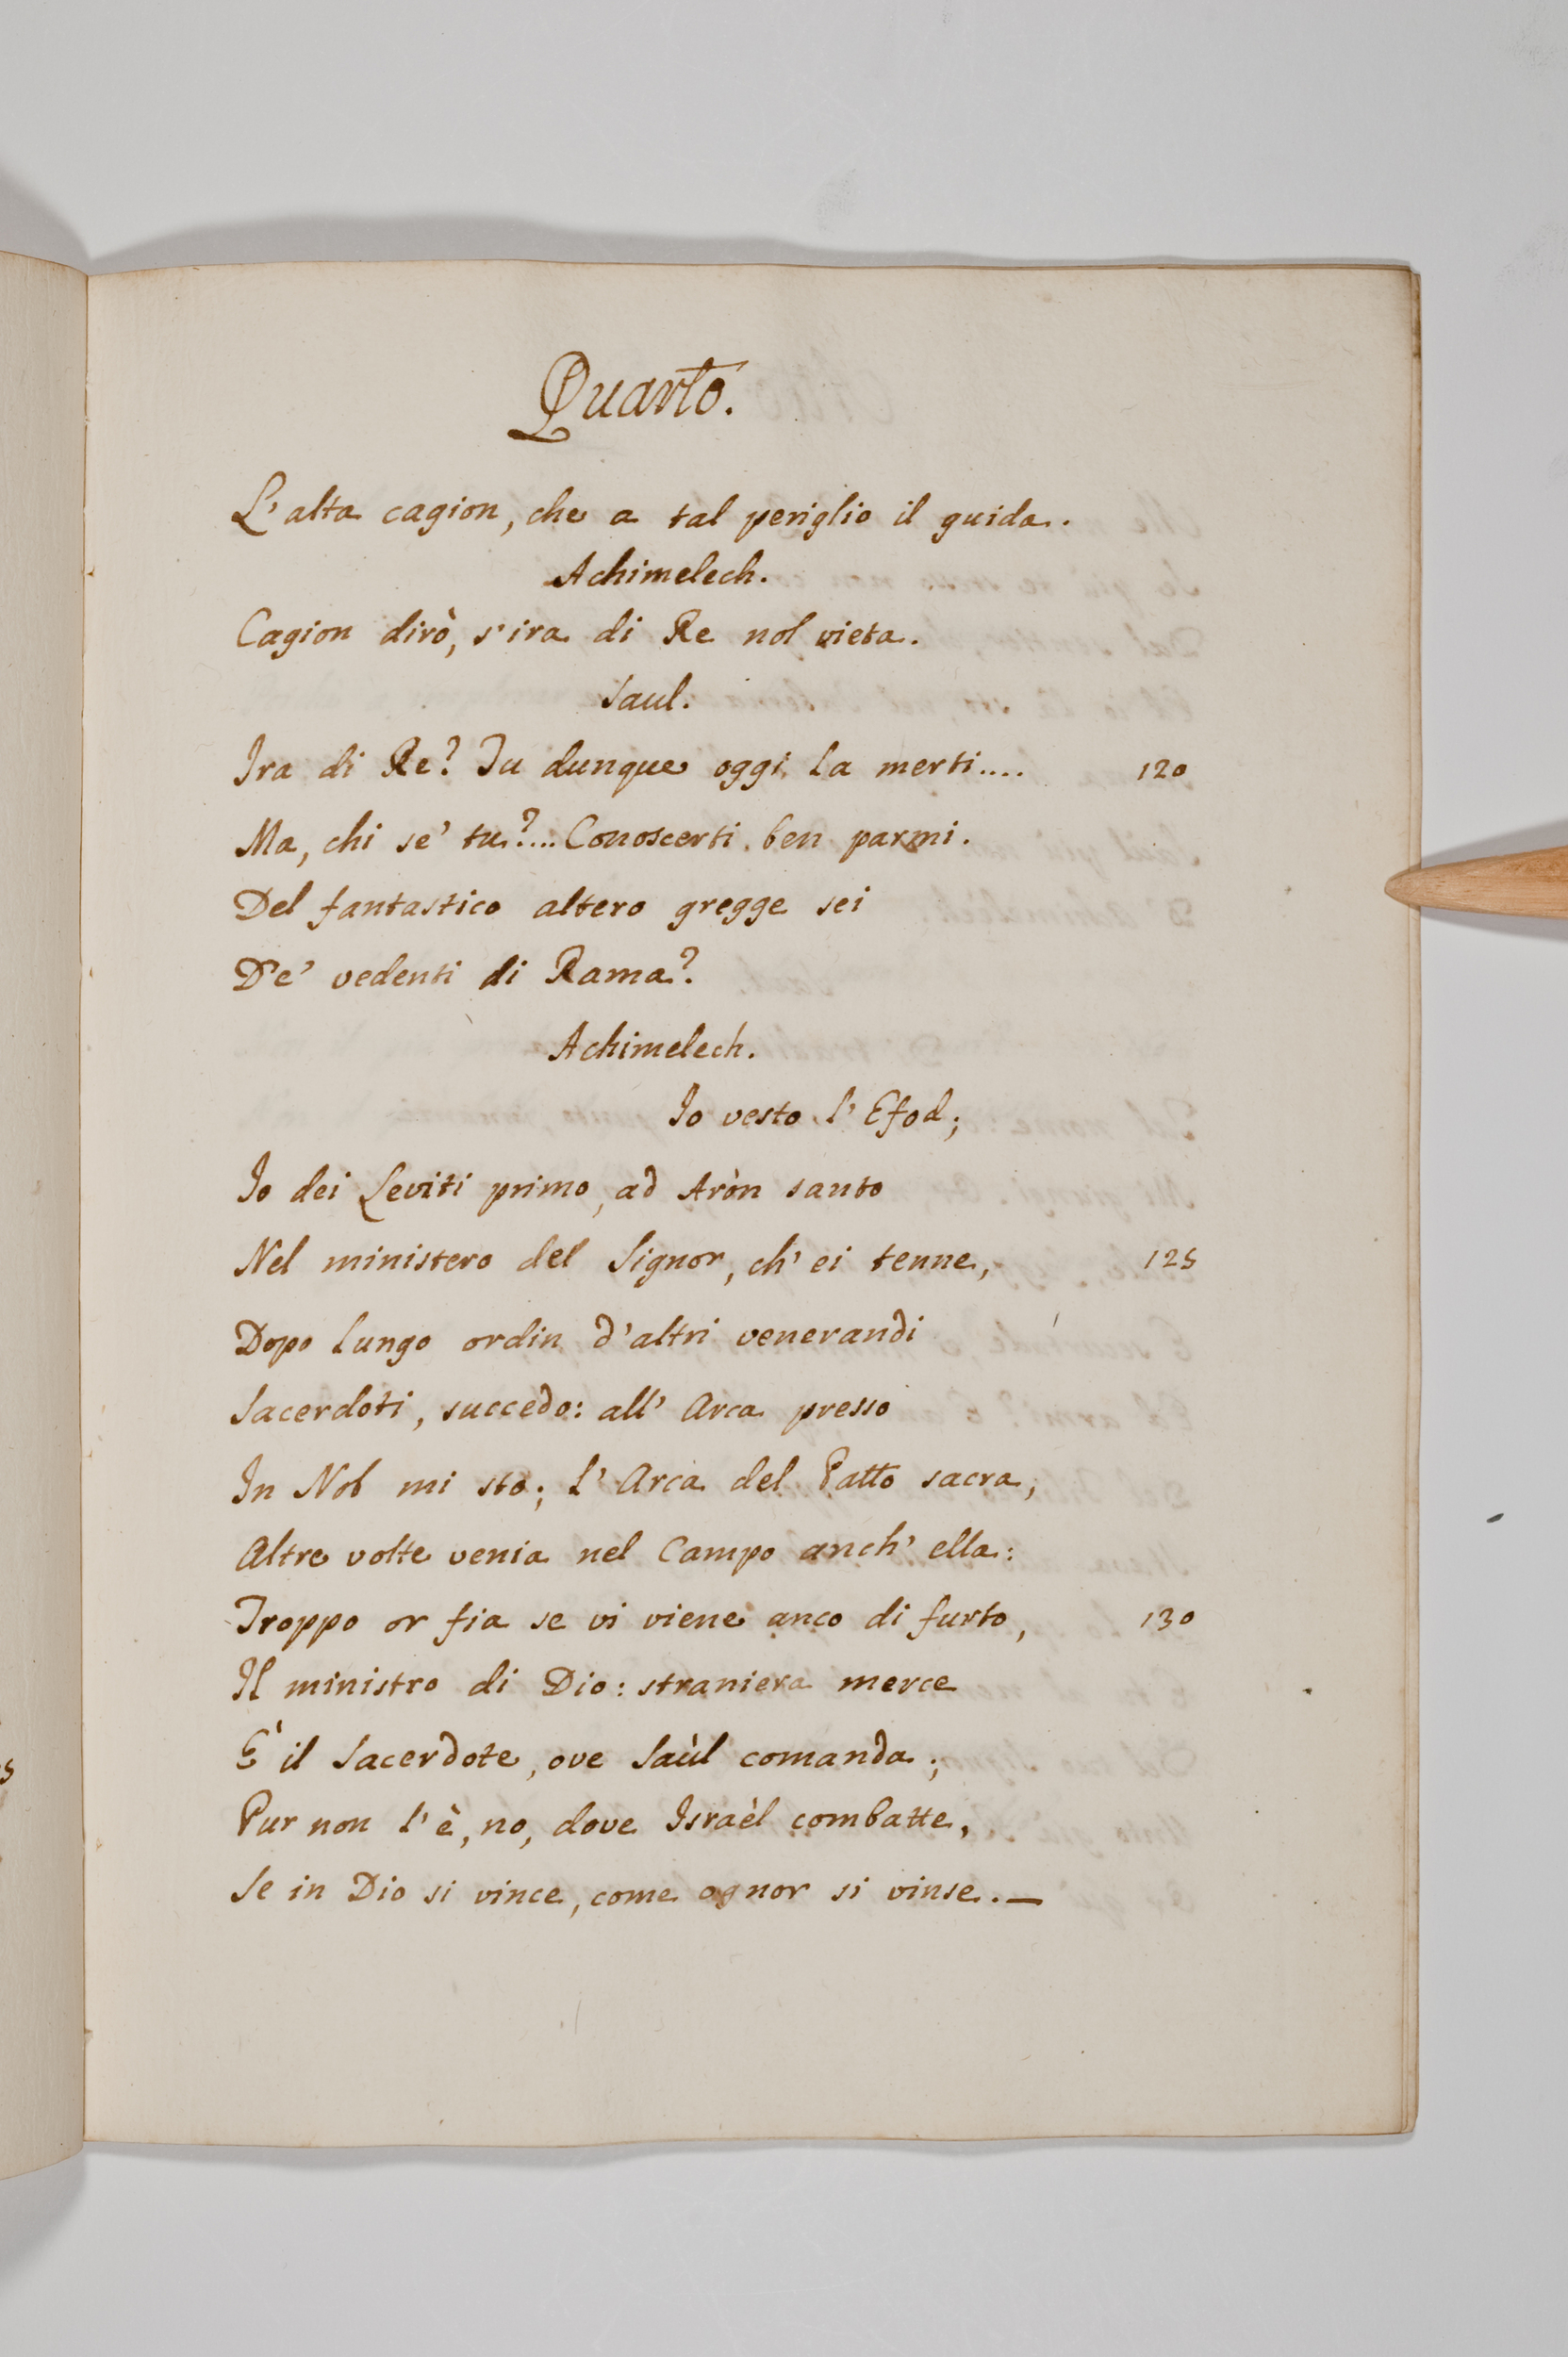 Quarto.
L'alta cagion, che a tal periglio il guida.
Achimelech.
Cagion dirò, s'ira di Re nol vieta.
Saul.
Ira di Re? Tu dunque oggi la merti.... 120
Ma, chi se' tu?.... Conoscerti ben parmi.
Del fantastico altero gregge sei
De' vedenti di Rama?
Achimelech.
Io vesto l'Efod;
Io dei Leviti primo, ad Aròn santo
Nel ministero del Signor, ch'ei tenne, 125
Dopo lungo ordin d'altri venerandi
Sacerdoti, succedo: all'Arca presso
In Nob mi sto; l'Arca del Patto sacra,
Altre volte venia nel Campo anch'ella:
Troppo or fia se vi viene anco di furto, 130
Il ministro di Dio: straniera merce
È il Sacerdote, ove Saùl comanda;
Pur non l'è, no, dove Israèl combatte,
Se in Dio si vince, come ognor si vinse. —